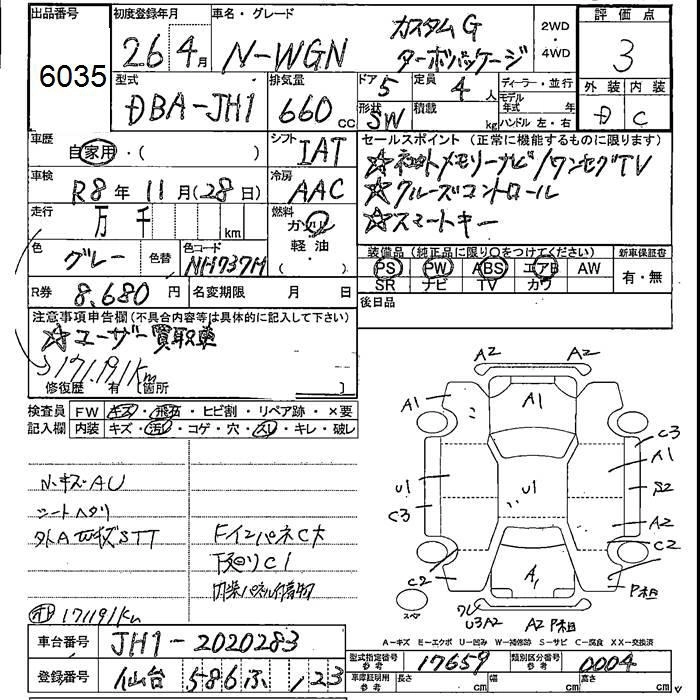 出品番号
6035
初度登録年月
26年4月
車名・グレード
N-WGN
カスタムG
ターボパッケージ
2WD
・
4WD
評価点
3
外装 内装
D C
型式
DBA-JH1
排気量
660 CC
ドア 5
定員 4 人
ディーラー・並行
モデル年式 年
ハンドル 左・右
形状 SW
積載 kg
車歴
自家用・( )
シフト
IAT
セールスポイント (正常に機能するものに限ります)
☆ネットメモリーナビ/ワンセグTV
☆クルーズコントロール
☆スマートキー
車検
R8年11月(28日)
冷房
AAC
走行
万 千 km
燃料
ガソリン
軽油
( )
色
グレー
色替
色コード
NH737M
装備品 (純正品に限り○をつけてください)
PS PW ABS エアB AW
SR ナビ TV カワ
新車保証書
有・無
R券 8,680 円
名変期限 月 日
後日品
注意事項申告欄 (不具合内容等は具体的に記入して下さい)
☆ユーザー買取車
171,191km
修復歴 有 [箇所 ]
検査員
記入欄
FW キズ・飛石・ヒビ割・リペア跡・×要
内装 キズ・汚レ・コゲ・穴・スレ・キレ・破レ
小キズAU
シートヘタリ
STT
FインパネC大
下廻りC1
内装パネル付着物
171191km
A2 A2
A1 A1
C3
A1
U1 U1 S2
C3
A2
C2
C2
A1
P相
スペア
ワレ
U3A2 A2 P相
A-キズ E-エクボ U-凹み W-補修跡 S-サビ C-腐食 XX-交換済
車台番号 JH1-2020283
登録番号 仙台 586 ふ 123
型式指定番号 参考 17659
類別区分番号 参考 0004
車庫証明用 参考 長さ cm 幅 cm 高さ cm